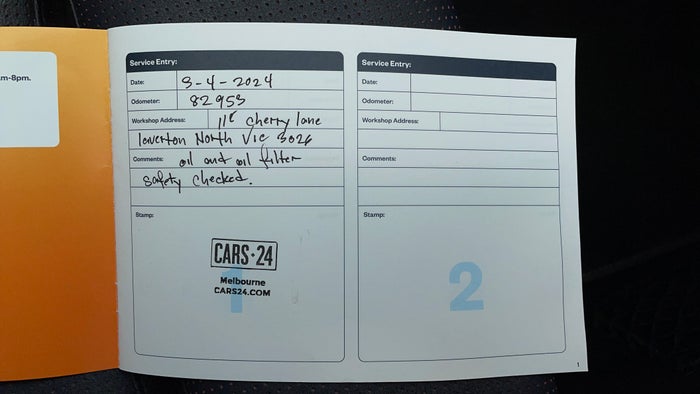 m-8pm.
Service Entry:
Date: 3-4-2024
Odometer: 82953
Workshop Address: cherry lane
laverton North Vic 3026
Comments: oil and oil filter
safety checked.
Stamp:
CARS·24
1
Melbourne
CARS24.COM
Service Entry:
Date:
Odometer:
Workshop Address:
Comments:
Stamp:
2
1